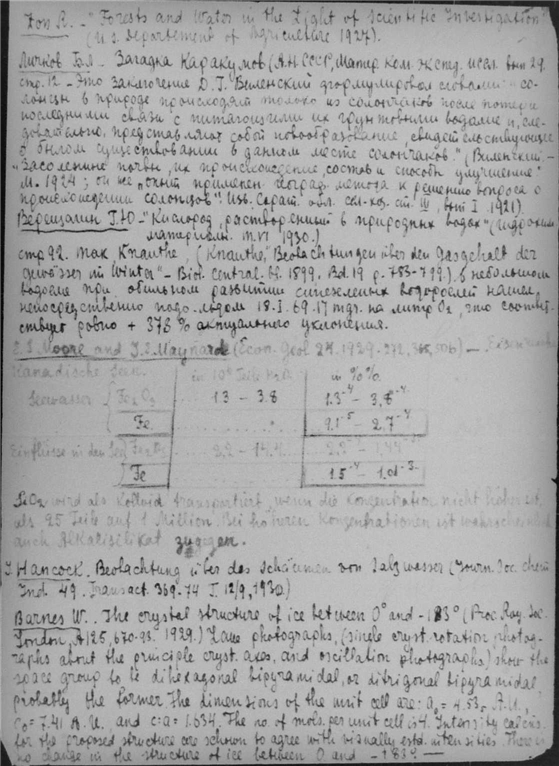 Zon R. - "Forests and Water in the Light of Scientific Investigation"
(U.S. Departement of Agriculture 1927).
Личков Б.Л. - Загадка Каракумов (А.Н. СССР, Матер. Ком. Эксп. Иссл. вып 29.
стр. 12 - Это заключение Д.Г. Виленский формулировал словами "со-
лонцы в природе происходят только из солончаков после потери
последними связи с питающими их грунтовыми водами и, сле-
довательно, представляют собой новообразование, свидетельствующее
о былом существовании в данном месте солончаков." (Виленский -
"Засоленные почвы, их происхождение, состав и способы улучшения"
М. 1924; он же, "Опыт применен. географ. метода к решению вопроса о
происхождении солонцов" Изв. Сарат. обл. сел.-хоз. ст. III, вып I. 1921).
Верещагин Г.Ю. "Кислород, растворенный в природных водах" (Гидрохим.
материалы. т. VI. 1930.)
стр 92. Так Knauthe, (Knauthe, "Beobachtungen über den Gasgehalt der
Gewässer im Winter" - Biol. Central.-bl. 1899. Bd. 19 p. 783-799.) в небольшом
водоеме при обильном развитии синезеленых водорослей нашел
непосредственно подо льдом 18.I. 69.17 mgr. на литр O₂, это соответ-
ствует ровно + 376% актуального уклонения.
E.S. Moore and J.E. Maynard (Econ. Geol 24. 1929. 272, 365, 506) -
Kanadische Seen. in 10⁶ Teile H₂O in %%
Seewasser Fe₂O₃ 1.3 - 3.8 1.3⁻⁴ - 3,8⁻⁴
Fe 9.1⁻⁵ - 2.7⁻⁴
Einflüsse in den See Fe₂O₃ 2.2 - 14.4
Fe 1.5⁻⁴ - 1.01⁻³
SiO₂ wird als Kolloid transportiert, wenn die Konzentration nicht höher ist,
als 25 Teile auf 1 Million. Bei höheren Konzentrationen ist wahrscheinlich
auch Alkalisilikat zugegen.
J. Hancock. Beobachtung über das Schäumen von Salzwasser (Journ. Soc. chem
Ind. 49. Transact. 369-74 I. 12/9, 1930)
Barnes W.. The crystal structure of ice between 0° and -183° (Proc. Roy. Soc.
London, A 125, 670-93. 1929.) Laue photographs, (single cryst. rotation photog-
raphs about the principle cryst. axes, and oscillation photographs) show the
space group to be dihexagonal bipyramidal, or ditrigonal bipyramidal,
probably the former. The dimensions of the unit cell are: a₀ = 4.53, A.U.,
c₀ = 7.41 A.U., and c:a = 1.634. The no. of mols. per unit cell is 4. Intensity calcns.
for the proposed structure are schown to agree with visually estd. intensities. There is
no change in the structure of ice between 0 and -183° —